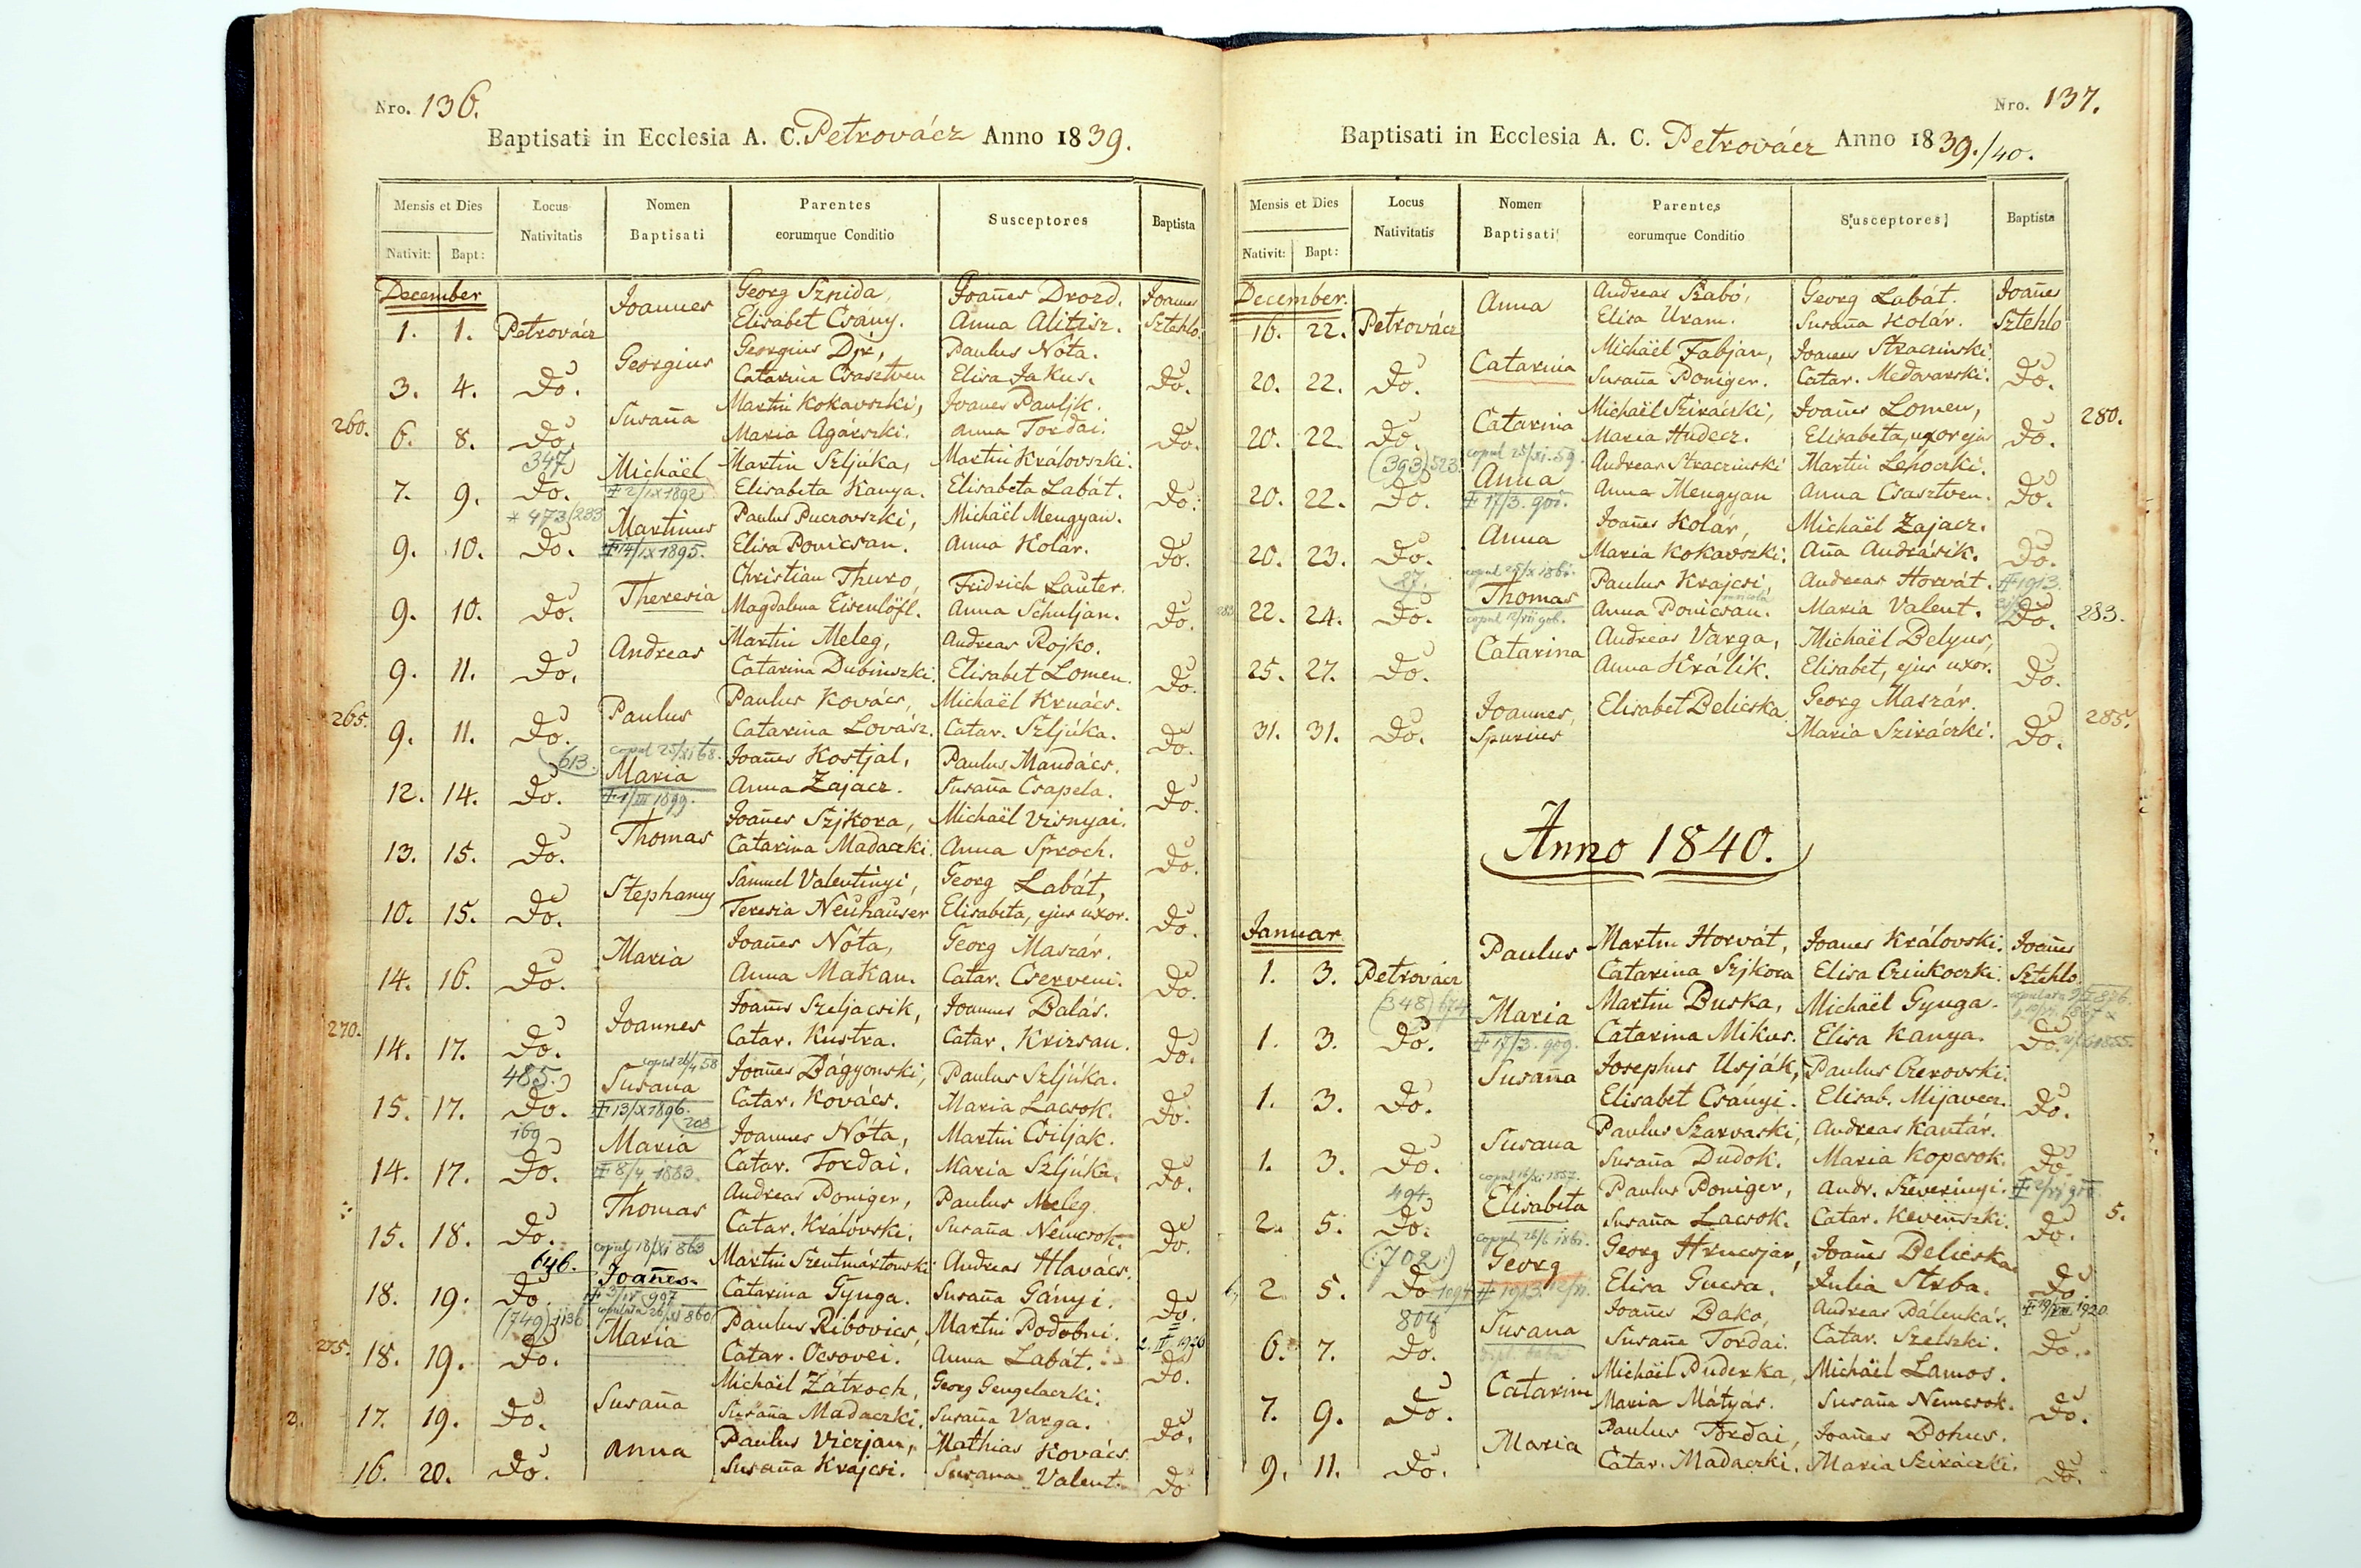 Nro. 136.
Baptisati in Ecclesia A. C. Petrovácz Anno 1839.
Mensis et Dies Locus Nomen Parentes Susceptores Baptista
Nativitatis Baptisati eorumque Conditio
Nativit: Bapt:
December Joannes Georg Sznida, Joañes Drozd. Joannes
1. 1. Petrovácz Elisabet Csány. Anna Alitisz. Sztehlo
Georgius Georgius Djr, Paulus Nóta.
3. 4. Do. Catarina Csasztven Elisa Jakus. Do.
Susaña Martin Kokavszki, Joanes Pauljk.
260. 6. 8. Do. Maria Agárszki. Anna Tordai. Do.
347 Michäel Martin Szljúka, Martin Královszki.
7. 9. Do. 2/IX 1892 Elisabeta Kanya. Elisabeta Labát. Do.
* 473/233 Martinus Paulus Pucrovszki, Michäel Mengyan.
9. 10. Do. 14/IX 1895. Elisa Ponicsan. Anna Kolár. Do.
Theresia Christian Thuro, Fridrich Lauter.
9. 10. Do. Magdalena Eisenlöfl. Anna Schuljan. Do.
Andreas Martin Meleg, Andreas Rojko.
9. 11. Do. Catarina Dubinszki. Elisabet Lomen. Do.
Paulus Paulus Kovács, Michäel Krnács.
265. 9. 11. Do. Catarina Lovász. Catar. Szljúka. Do.
613. copul 25/XI 68. Maria Joañes Kostjal, Paulus Mandács.
12. 14. Do. 1/III 1899. Anna Zajacz. Susaña Csapela. Do.
Thomas Joañes Szjkora, Michäel Visnyai.
13. 15. Do. Catarina Madaczki. Anna Sproch. Do.
Stephanus Samuel Valentinyi, Georg Labát,
10. 15. Do. Teresia Neuhauser Elisabeta, ejus uxor. Do.
Maria Joañes Nóta, Georg Maszár.
14. 16. Do. Anna Makan. Catar. Cserveni. Do.
Joannes Joañes Szeljacsik, Joannes Balás.
270. 14. 17. Do. Catar. Kustra. Catar. Krizsan. Do.
485. copul 26/4 58 Susana Joañes Bágyonski, Paulus Szljúka.
15. 17. Do. 13/X 1896. Catar. Kovács. Maria Lacsok. Do.
169 203 Maria Joannes Nóta, Martin Csiljak.
14. 17. Do. 8/4 1883. Catar. Tordai. Maria Szljúka. Do.
Thomas Andreas Poniger, Paulus Meleg.
15. 18. Do. Catar. Královski. Susaña Nemcsok. Do.
646. copul 18/XI 863 Joañes Martin Szentmártonski Andreas Hlavács.
18. 19. Do. 3/IV 907 Catarina Gyuga. Susaña Gányi. Do.
(749) 1136 copulata 26/XI 860 Maria Paulus Ribovics, Martin Podobni. 2. II 1920
275. 18. 19. Do. Catar. Ocsovei. Anna Labát. Do.
Susaña Michäel Zátroch, Georg Gengelaczki.
17. 19. Do. Susaña Madaczki. Susaña Varga. Do.
Anna Paulus Viczjan, Mathias Kovács.
16. 20. Do. Susaña Krajcsi. Susana Valent. Do
Nro. 137.
Baptisati in Ecclesia A. C. Petrovácz Anno 1839./40.
Mensis et Dies Locus Nomen Parentes Susceptores Baptista
Nativitatis Baptisati eorumque Conditio
Nativit: Bapt:
December. Anna Andreas Szabó, Georg Labát. Joañes
16. 22. Petrovácz Elisa Uram. Susaña Kolár. Sztehlo
Catarina Michäel Fabjan, Joannes Straczinski.
20. 22. Do. Susaña Poniger. Catar. Medovarski. Do.
Catarina Michäel Sziráczki, Joañes Lomen, 280.
20. 22. Do. Maria Hudecz. Elisabeta, uxor ejus Do.
(393) 523 copul 25/XI. 59. Anna Andreas Straczinski Martin Lehoczki.
20. 22. Do. 17/3. 901. Anna Mengyan Anna Csasztven. Do.
Anna Joañes Kolár, Michäel Zajacz.
20. 23. Do. Maria Kokavszki. Aña Andrásik. Do.
27. Thomas Paulus Krajcsi, Andreas Horvát. 1913.
22. 24. Do. Anna Ponicsan. Maria Valent. Do. 283.
Catarina Andreas Varga, Michäel Belyus,
25. 27. Do. Anna Králik. Elisabet, ejus uxor. Do.
Joannes, Elisabet Belicska Georg Maszár. 285.
31. 31. Do. Spurius Maria Sziráczki. Do.
Anno 1840.
Januar Paulus Martin Horvát, Joanes Královski. Joañes
1. 3. Petrovácz Catarina Szjkora Elisa Czinkoczki. Sztehlo
(348) 674 Maria Martin Buska, Michäel Gyuga.
1. 3. Do. 17/3. 909. Catarina Mikus. Elisa Kanya. Do.
Susaña Josephus Usják, Paulus Czerovski.
1. 3. Do. Elisabet Csányi. Elisab. Mijavecz. Do.
Susana Paulus Szarvaski, Andreas Kantár.
1. 3. Do. Susaña Dudok. Maria Kopcsok. Do.
494 copul 16/XI 1857. Elisabeta Paulus Poniger, Andr. Szeverinyi.
2. 5. Do. Susaña Lacsok. Catar. Kevenszki. Do. 5.
(702) Georg Georg Hrncsjar, Joañes Belicska
2. 5. Do 1094 1913 Elisa Gucsa. Julia Strba. Do.
804 Susana Joañes Bako, Andreas Pálenkás. 19/VIII 1920
6. 7. Do. Susaña Tordai. Catar. Szelszki. Do.
Catarina Michäel Puderka, Michäel Lamos.
7. 9. Do. Maria Mátyás. Susaña Nemcsok. Do.
Maria Paulus Tordai, Joañes Bohus.
9. 11. Do. Catar. Madaczki. Maria Sziráczki. Do.